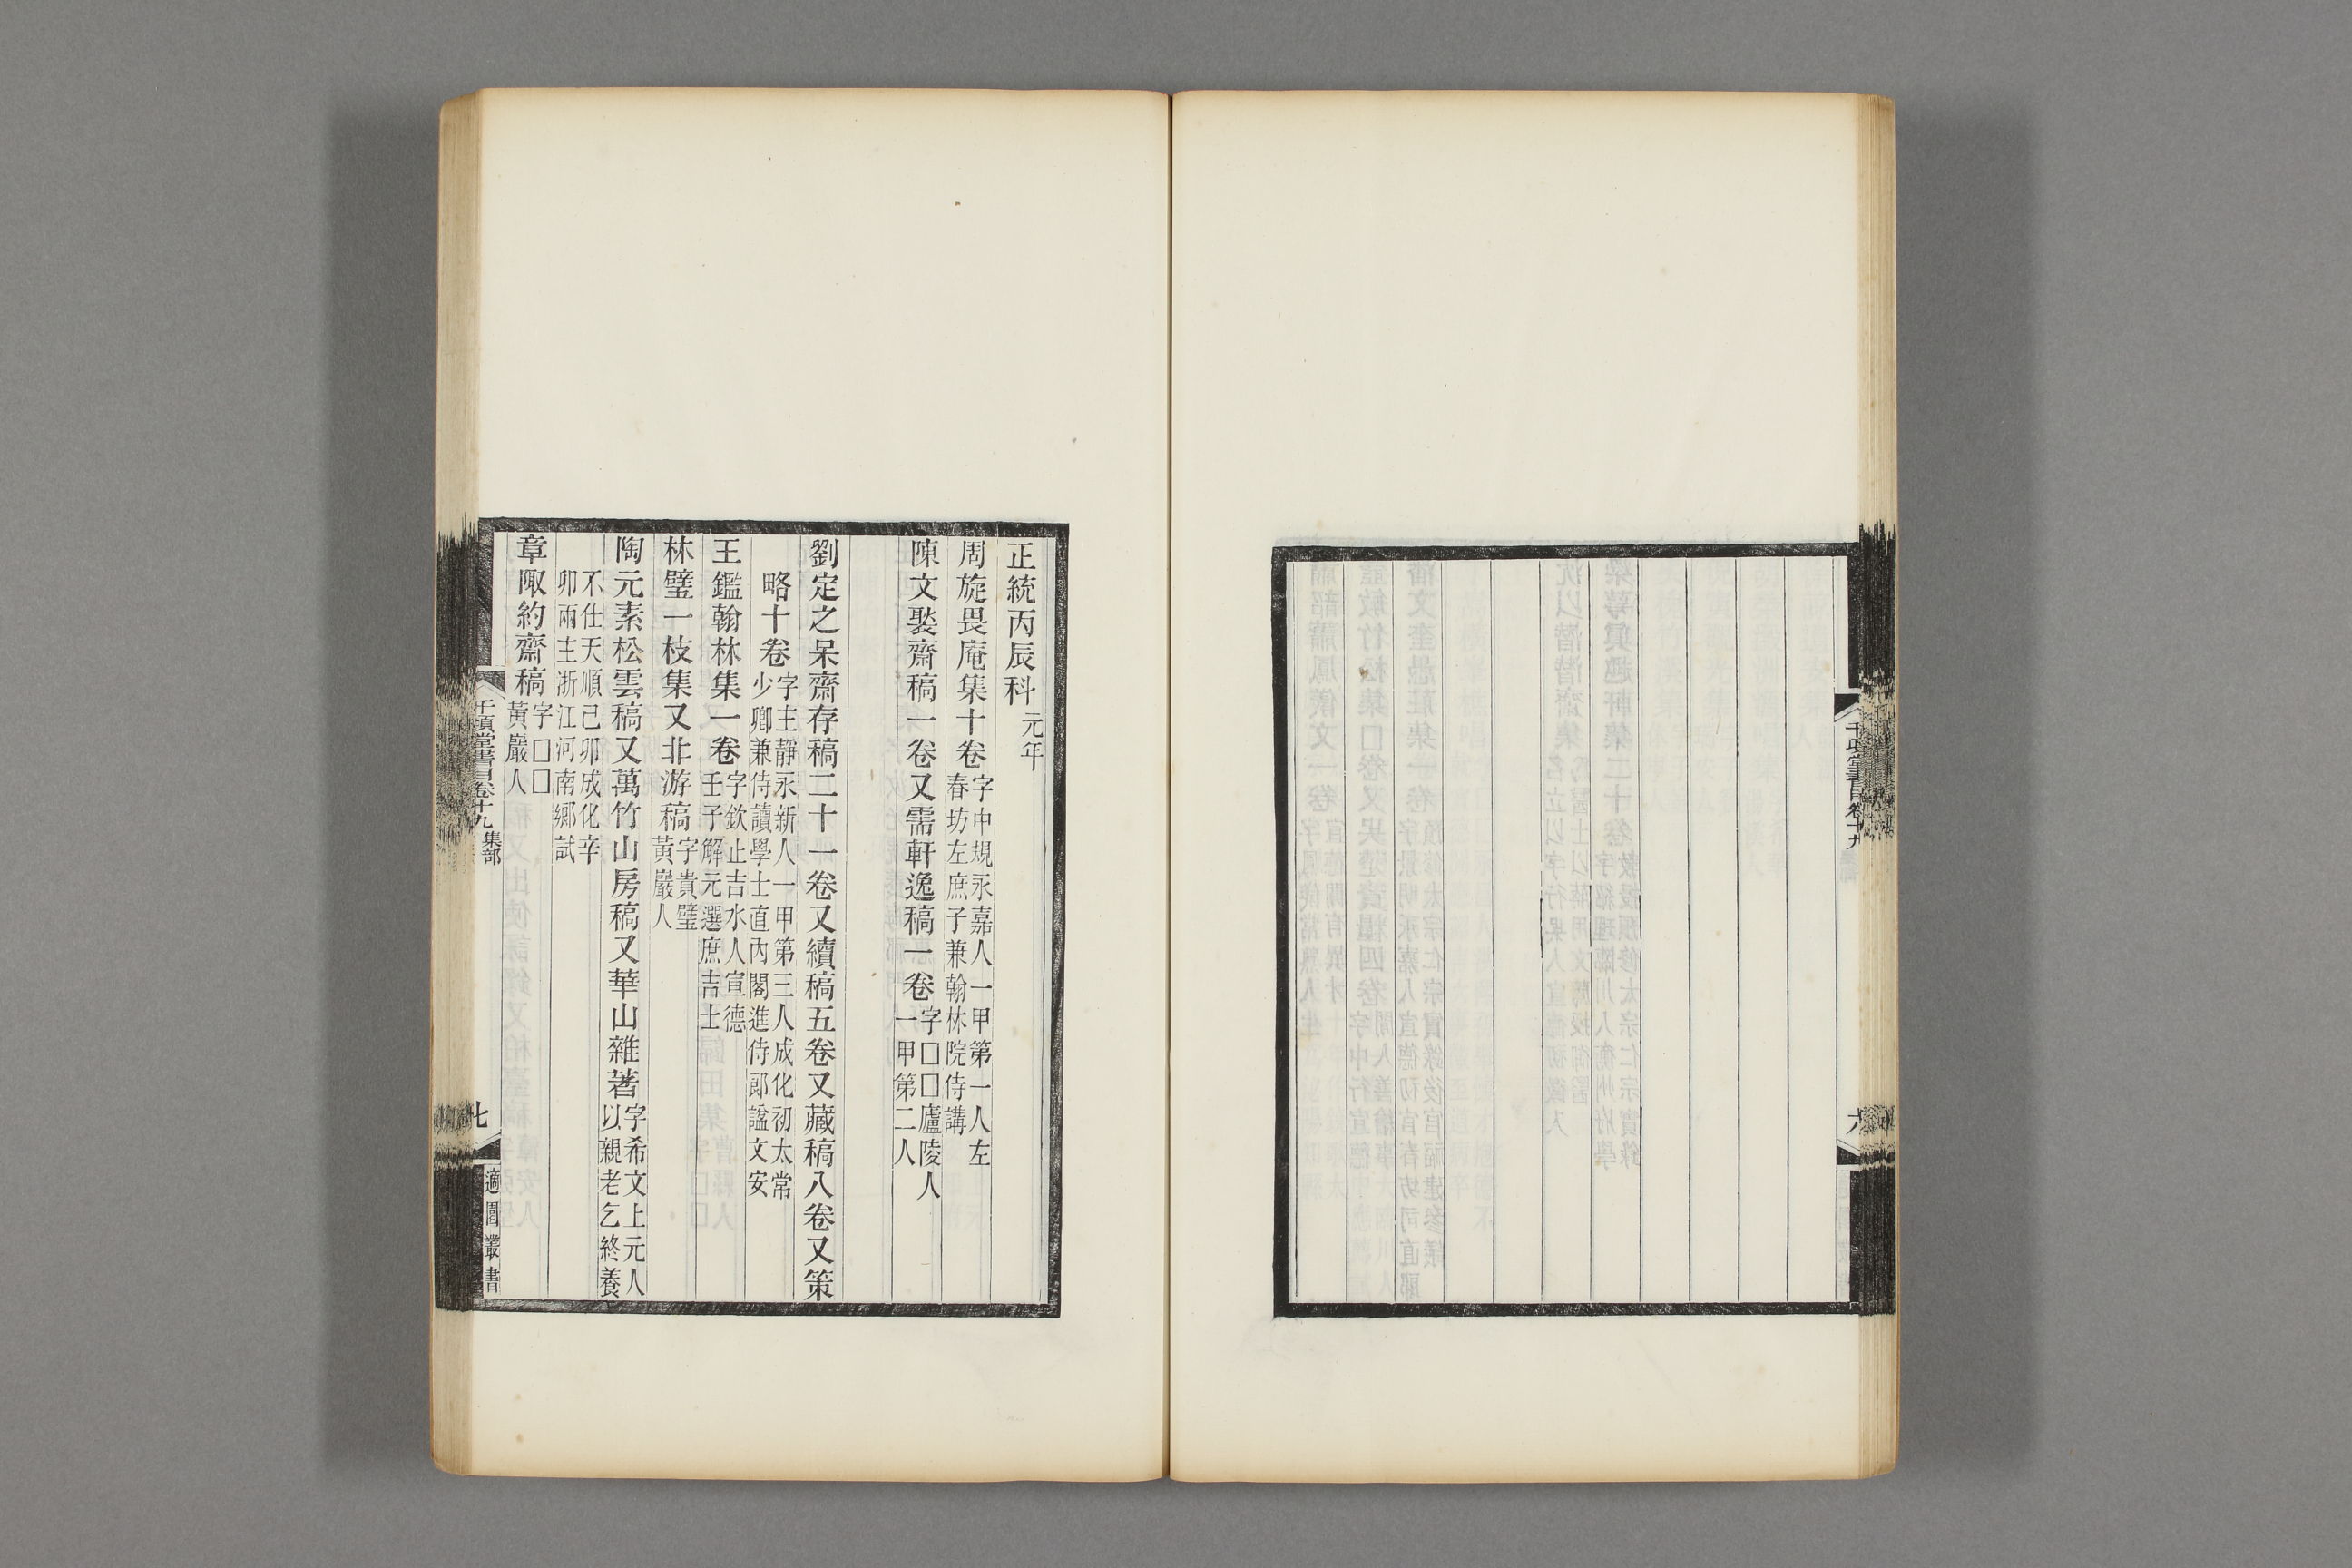 千頃堂書目卷十九
正統丙辰科元年
周旋畏庵集十卷字中規永嘉人一甲第一人左
春坊左庶子兼翰林院侍講
陳文褧齋稿一卷又需軒逸稿一卷字□□廬陵人
一甲第二人
劉定之呆齋存稿二十一卷又續稿五卷又藏稿八卷又策
略十卷字主靜永新人一甲第三人成化初太常
少卿兼侍讀學士直內閣進侍郎謚文安
王鑑翰林集一卷字欽止吉水人宣德
壬子解元選庶吉士
林璧一枝集又北游稿字貴璧
黃巖人
陶元素松雲稿又萬竹山房稿又華山雜著字希文上元人
以親老乞終養
不仕天順己卯成化辛
卯兩主浙江河南鄉試
章陬約齋稿字□□
黃巖人
千頃堂書目卷十九 集部
七
適園叢書